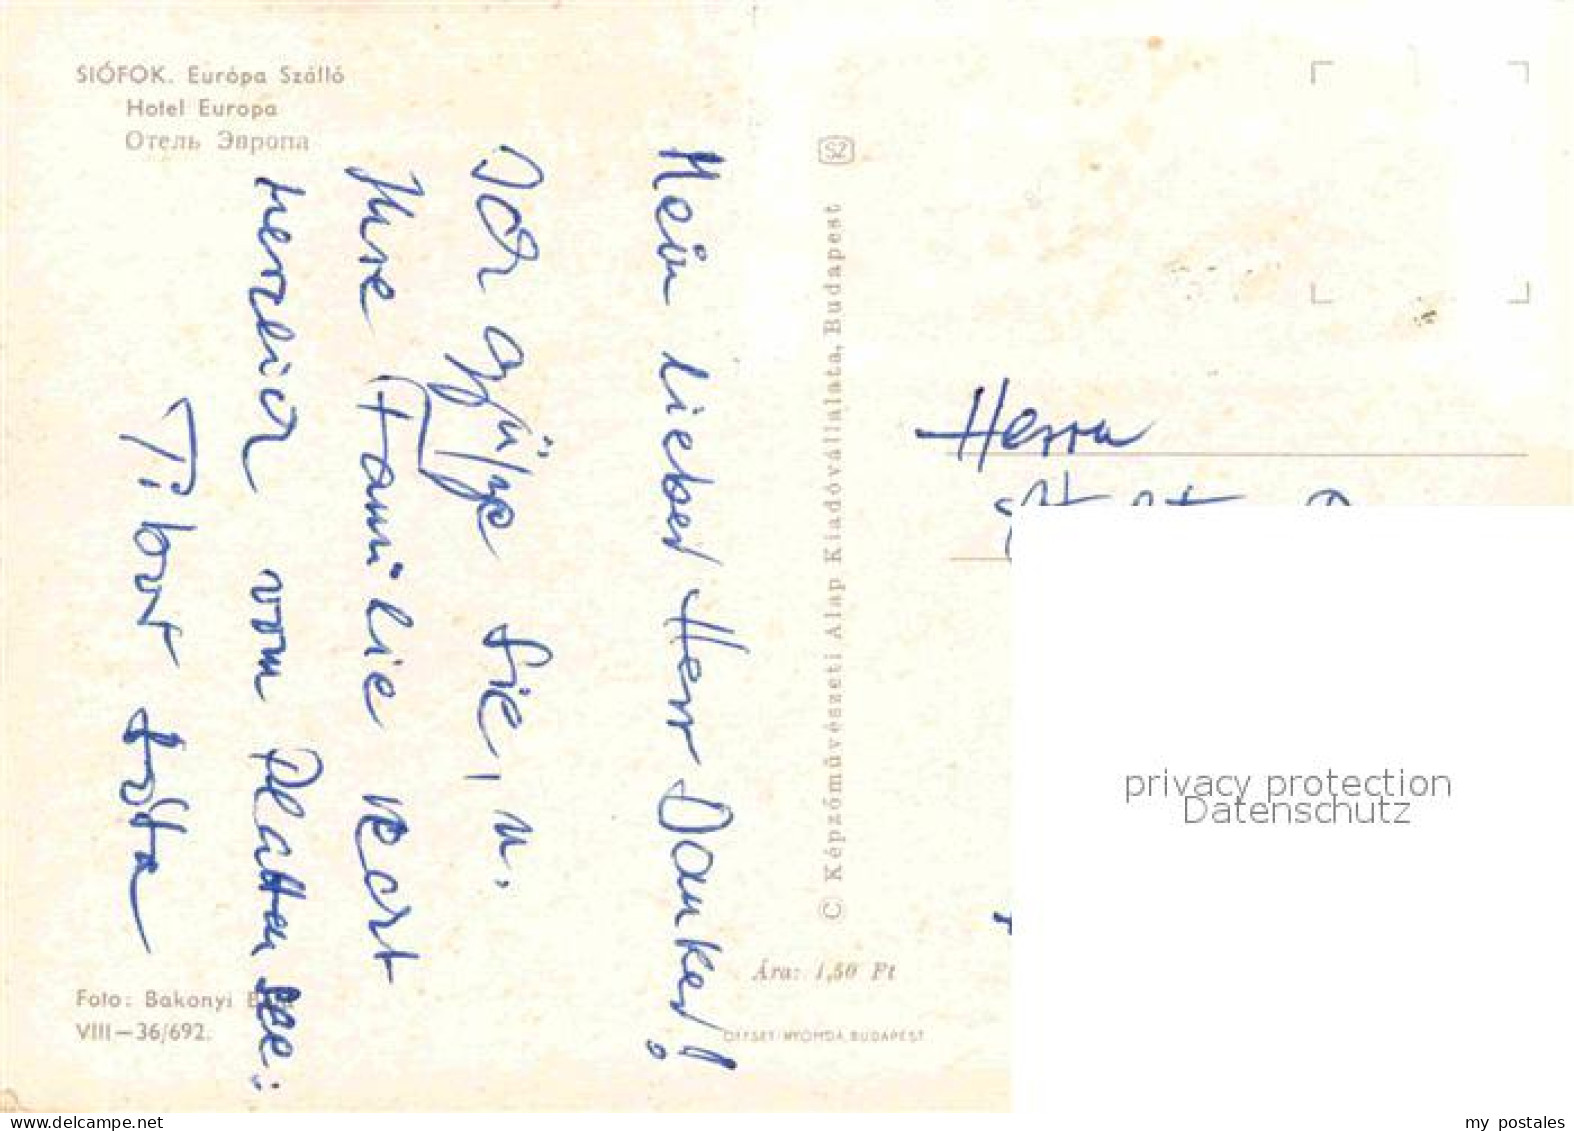 SIÓFOK. Európa Szálló
Hotel Europa
Отель Эвропа
Mein lieber Herr Danker!
Ich grüße Sie, u.
Ihre Familie recht
herzlich vom Plattensee:
Tibor
Foto: Bakonyi
VIII—36/692.
SZ
© Képzőművészeti Alap Kiadóvállalata, Budapest
Ára: 1,50 Ft
OFFSET-NYOMDA, BUDAPEST
Herrn
privacy protection
Datenschutz
www.delcampe.net
my_postales